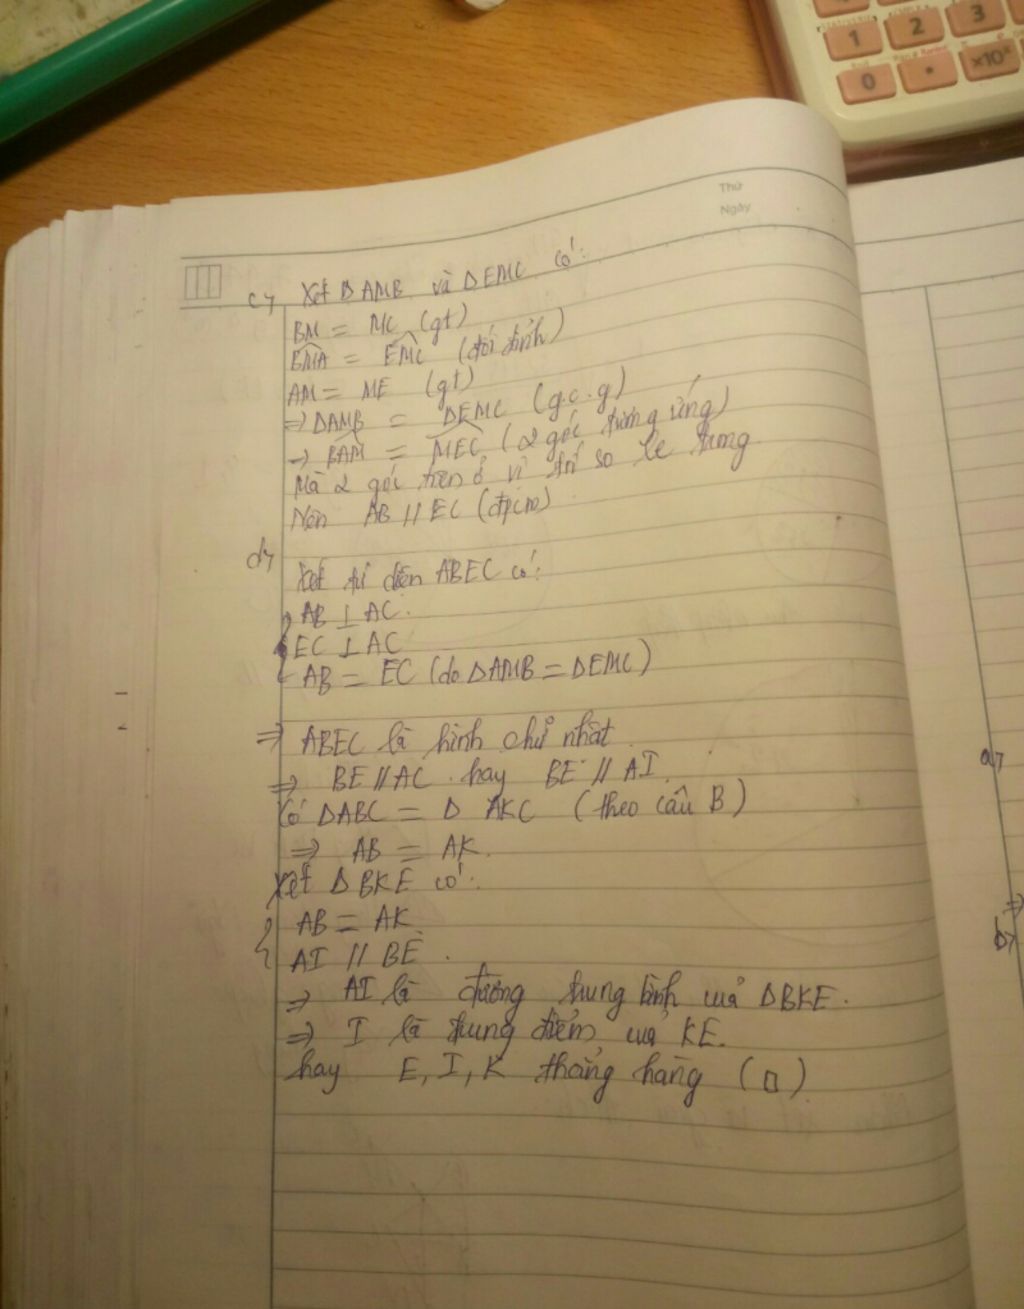 1
2
3
0
.
×10ˣ
Thứ
Ngày
c, Xét ΔAMB và ΔEMC có:
BM = MC (gt)
BMA = EMC (đối đỉnh)
AM = ME (gt)
=> ΔAMB = ΔEMC (g.c.g)
=> BAM = MEC (2 góc tương ứng)
Mà 2 góc trên ở vị trí so le trong
Nên AB // EC (đpcm)
d, Xét tứ diện ABEC có:
AB ⊥ AC.
EC ⊥ AC
AB = EC (do ΔAMB = ΔEMC)
=> ABEC là hình chữ nhật
=> BE // AC hay BE // AI.
Có ΔABC = Δ AKC (theo câu B)
=> AB = AK.
Xét ΔBKE có:
AB = AK
AI // BE.
=> AI là đường trung bình của ΔBKE.
=> I là trung điểm của KE.
hay E, I, K thẳng hàng (□)
a,
=>
b,